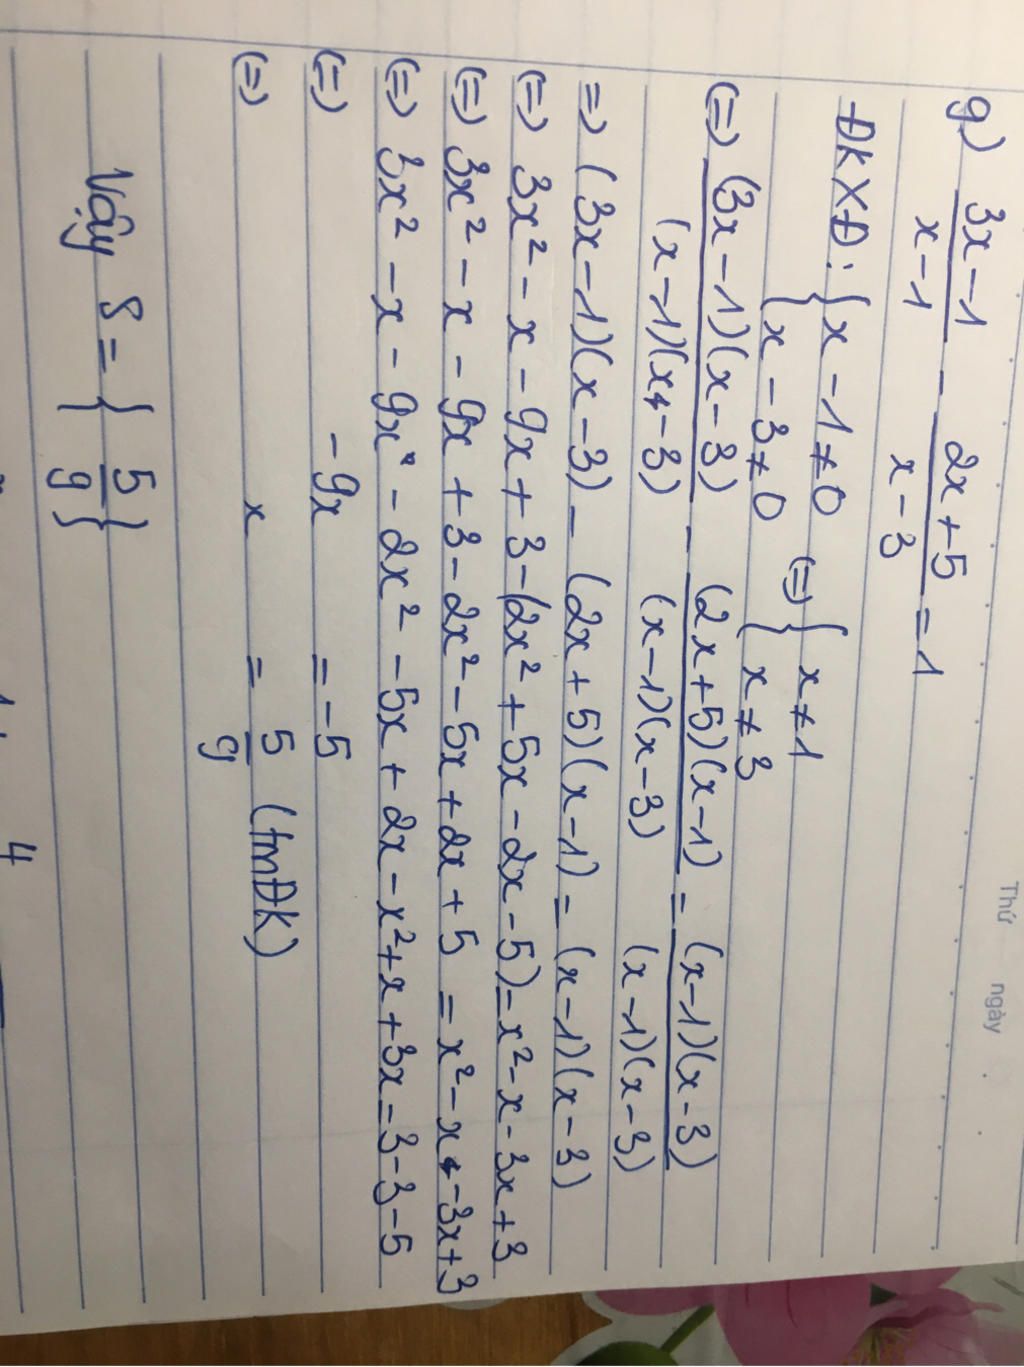 Thứ ngày
g) (3x-1)/(x-1) - (2x+5)/(x-3) = 1
ĐKXĐ: { x-1≠0 (=) { x≠1
{ x-3≠0 { x≠3
(=) (3x-1)(x-3)/(x-1)(x-3) - (2x+5)(x-1)/(x-1)(x-3) = (x-1)(x-3)/(x-1)(x-3)
=) (3x-1)(x-3) - (2x+5)(x-1) = (x-1)(x-3)
(=) 3x² - x - 9x + 3 - (2x² + 5x - 2x - 5) = x² - x - 3x + 3
(=) 3x² - x - 9x + 3 - 2x² - 5x + 2x + 5 = x² - x - 3x + 3
(=) 3x² - x - 9x - 2x² - 5x + 2x - x² + x + 3x = 3 - 3 - 5
(=) -9x = -5
(=) x = 5/9 (tmĐK)
Vậy S = { 5/9 }
4